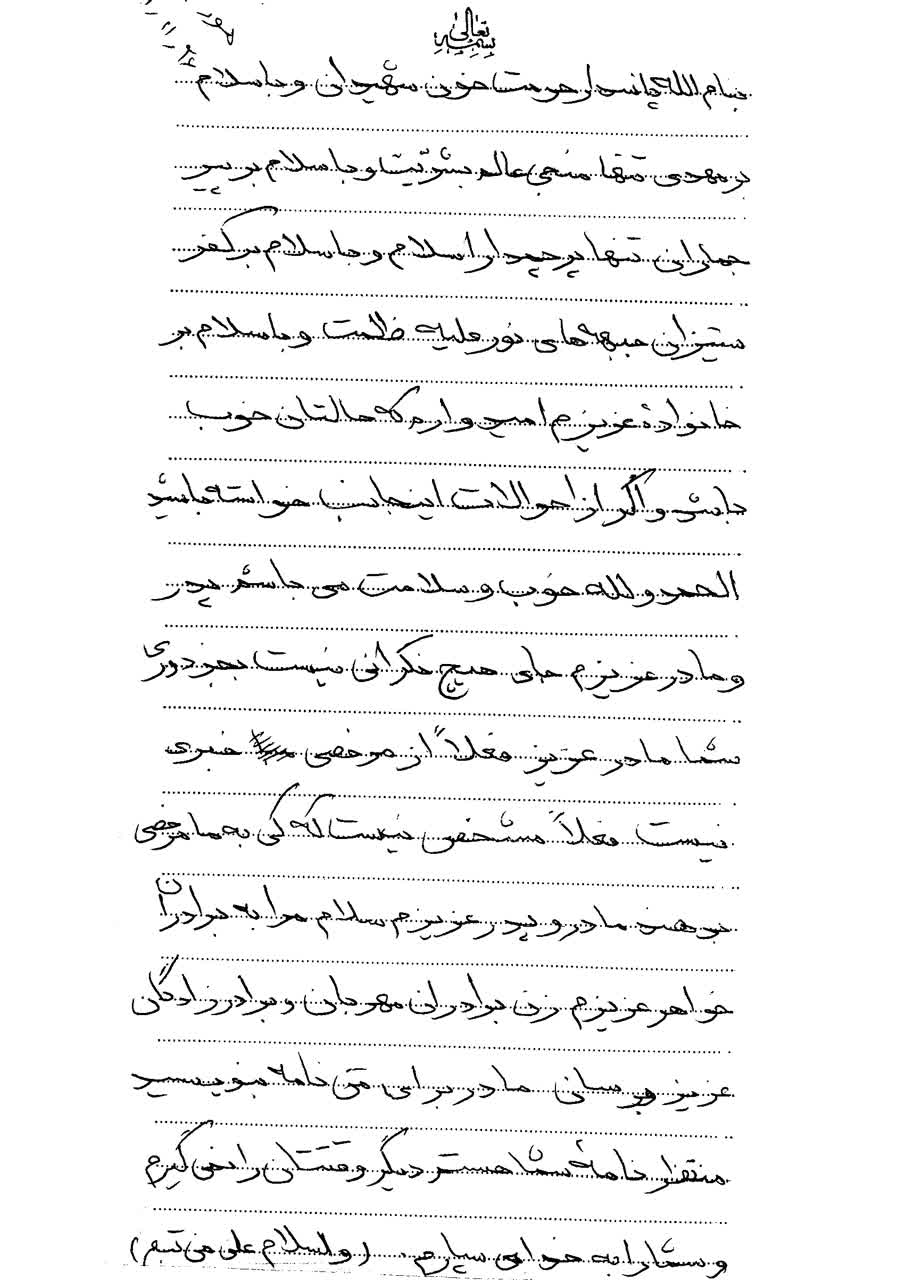 بسمه تعالی
بنام الله پاسدار حرمت خون شهیدان و با سلام
بر مهدی تنها منجی عالم بشریّت و با سلام بر پیر
جماران تنها پرچمدار اسلام و با سلام بر کفر
ستیزان جبهه های نور علیه ظلمت و با سلام بر
خانوادهٔ عزیزم امید وارم که حالتان خوب
باشد و اگر از احوالات اینجانب خواسته باشید
الحمد و لله خوب و سلامت می باشم پدر
و مادر عزیزم جای هیچ نگرانی نیست بجز دوری
شما مادر عزیز فعلاً از مرخصی خبری
نیست فعلاً مشخص نیست که کی به ما مرخصی
بدهند مادر و پدر عزیزم سلام مرا به برادران
خواهر عزیزم زن برادران مهربان و برادرزادگان
عزیز برسانی مادر برای من نامه بنویسید
منتظر نامهٔ شما هستم دیگر وقتتان را نمی گیرم
و شما را به خدا می سپارم. (ولسلام علی من تبع)